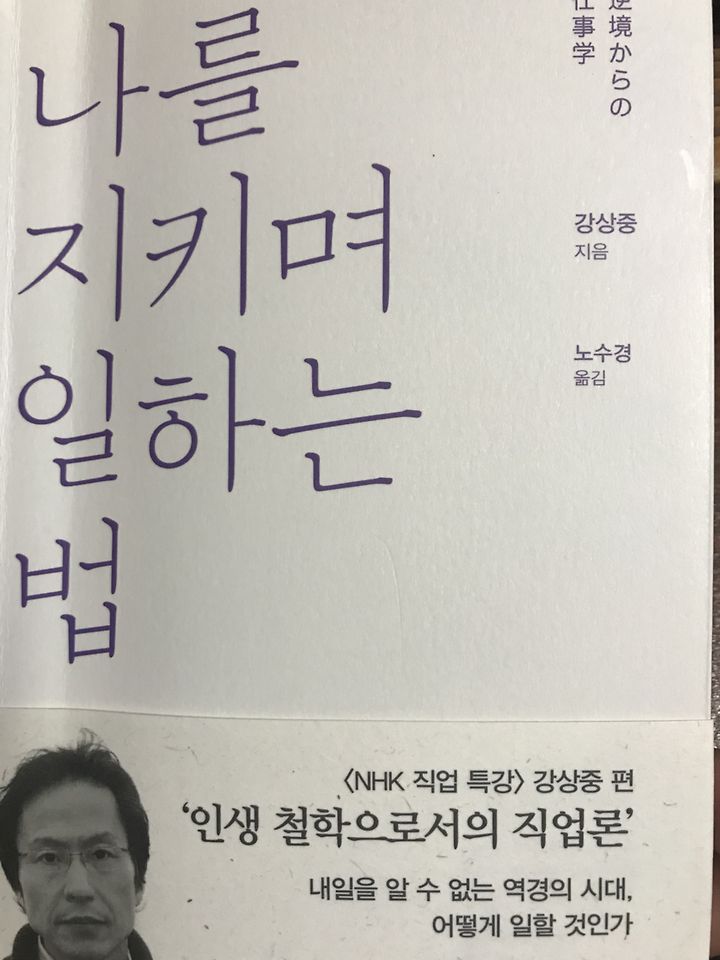 나를
지키며
일하는
법
逆境からの
仕事学
강상중
지음
노수경
옮김
〈NHK 직업 특강〉 강상중 편
‘인생 철학으로서의 직업론’
내일을 알 수 없는 역경의 시대,
어떻게 일할 것인가